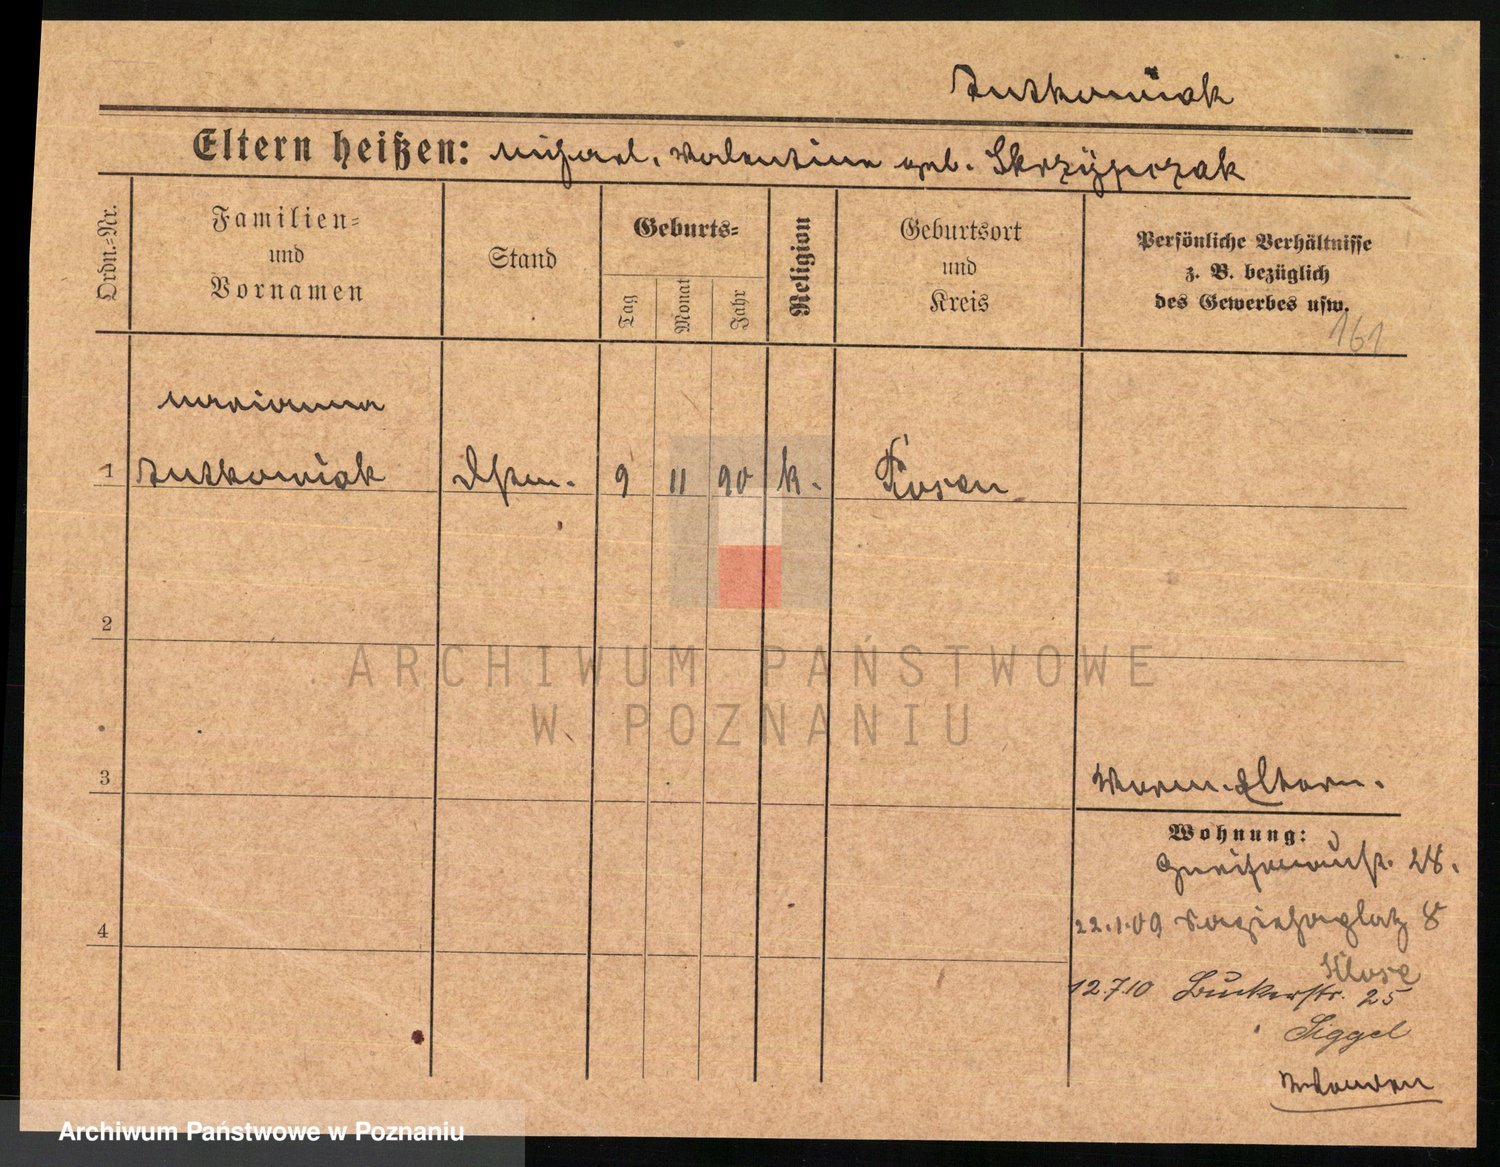 Eltern heißen: Michael, Valentine geb. Skrzypczak
Ordn.=Nr.
Familien=
und
Vornamen
Stand
Geburts=
Tag
Monat
Jahr
Religion
Geburtsort
und
Kreis
Persönliche Verhältnisse
z. B. bezüglich
des Gewerbes usw.
161
Marianna
1
9 11 90 k. Posen
2
ARCHIWUM PAŃSTWOWE
W POZNANIU
3
Eltern.
Wohnung:
Gneisenaustr. 28.
4
22.1.09 Sapiehaplatz 8
Klose
12.7.10 Bukerstr. 25
Siggel
Archiwum Państwowe w Poznaniu